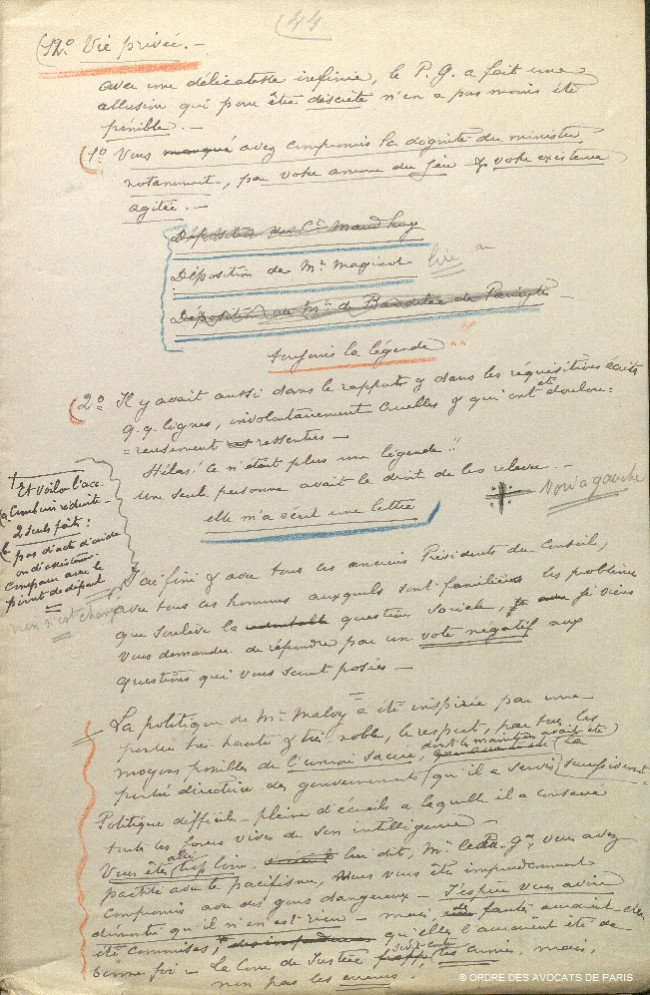 44
12º Vie privée. -
Avec une délicatesse infinie, le P. G. a fait une
allusion qui pour être discrète n'en a pas moins été
pénible. -
1º Vous manqué avez compromis la dignité du ministre
notamment, par votre amour du jeu & votre existence
agitée. -
Déposition du
Déposition de Mr Magisot lire
Déposition de Mr de
Toujours la légende "
2º Il y avait aussi dans le rapport & dans les réquisitoires écrits
q.q. lignes, involontairement cruelles & qui ont été doulou=
=reusement ressenties -
Hélas! ce n'était plus une légende!!
Une seule personne avait le droit de les relever. -
elle m'a écrit une lettre
Voir à gauche
Et voilà l'acc.
réduite -
2 seuls faits:
pas d'acte d'
compare avec le
point de départ
rien n'est changé
J'ai fini & avec tous les anciens Présidents du Conseil,
avec tous les hommes auxquels sont familiers les problèmes
que soulève la question sociale, je viens
vous demander de répondre par un vote négatif aux
questions qui vous sont posées -
La politique de Mr Malvy a été inspirée par une
pensée très haute & très noble, le respect, par tous les
moyens possibles de l'union sacrée, dont le maintien avait été la
pensée directrice des gouvernements qu'il a servis successivement
Politique difficile - pleine d'écueils à laquelle il a consacré
toutes les forces vives de son intelligence -
Vous êtes allé trop loin, lui dit, Mr le P. Gal, vous avez
pactisé avec le pacifisme, vous vous êtes imprudemment
compromis avec des gens dangereux - J'espère vous avoir
démontré qu'il n'en est rien - mais, des fautes auraient-elles
été commises, qu'elles l'auraient été de
bonne foi - La Cour de Justice les crimes, mais,
non pas les erreurs.
© ORDRE DES AVOCATS DE PARIS